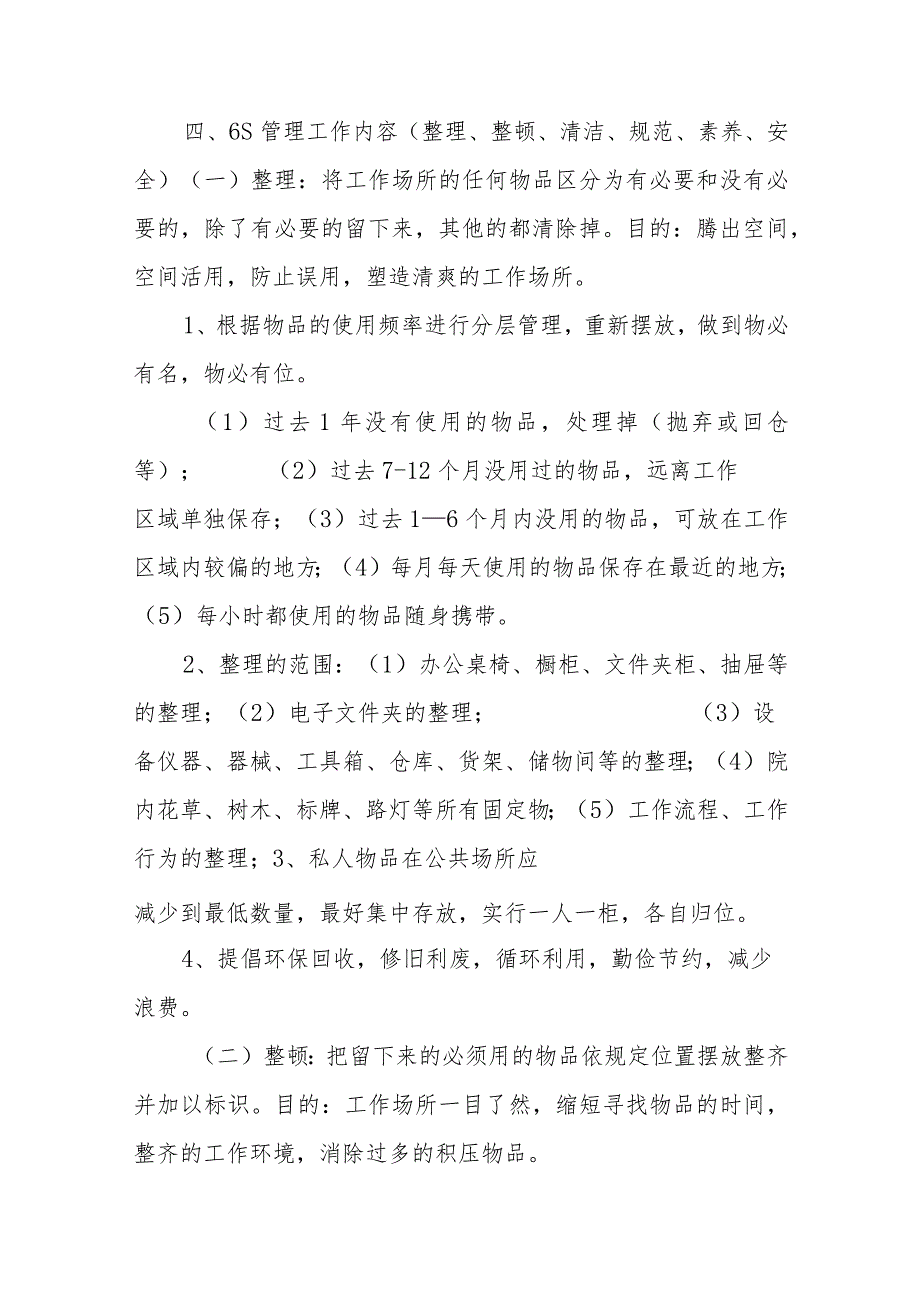 四、6S管理工作内容（整理、整顿、清洁、规范、素养、安
全）（一）整理：将工作场所的任何物品区分为有必要和没有必
要的，除了有必要的留下来，其他的都清除掉。目的：腾出空间，
空间活用，防止误用，塑造清爽的工作场所。
1、根据物品的使用频率进行分层管理，重新摆放，做到物必
有名，物必有位。
（1）过去1年没有使用的物品，处理掉（抛弃或回仓
等）； （2）过去7-12个月没用过的物品，远离工作
区域单独保存；（3）过去1—6个月内没用的物品，可放在工作
区域内较偏的地方；（4）每月每天使用的物品保存在最近的地方；
（5）每小时都使用的物品随身携带。
2、整理的范围：（1）办公桌椅、橱柜、文件夹柜、抽屉等
的整理；（2）电子文件夹的整理； （3）设
备仪器、器械、工具箱、仓库、货架、储物间等的整理；（4）院
内花草、树木、标牌、路灯等所有固定物；（5）工作流程、工作
行为的整理；3、私人物品在公共场所应
减少到最低数量，最好集中存放，实行一人一柜，各自归位。
4、提倡环保回收，修旧利废，循环利用，勤俭节约，减少
浪费。
（二）整顿：把留下来的必须用的物品依规定位置摆放整齐
并加以标识。目的：工作场所一目了然，缩短寻找物品的时间，
整齐的工作环境，消除过多的积压物品。